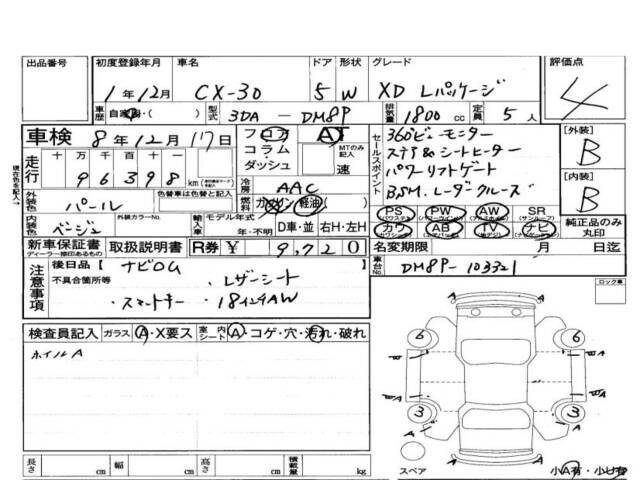 出品番号 初度登録年月 車名 ドア 形状 グレード 評価点
1年12月 CX-30 5 W XD Lパッケージ 4
車歴 自家用・( ) 型式 3DA - DM8P 排気量 1800 cc 定員 5人
車検 8年12月17日 フロア AT セールスポイント 360°ビューモニター [外装] B
コラム MTのみ記入 ステア&シートヒーター
走行 十万千百十一 ダッシュ 速 パワーリフトゲート
96398 km 冷房 AAC BSM.レーダークルーズ [内装] B
外装色 パール 色替車は色替と記入 燃料 ガソリン 軽油
PS PW AW SR
内装色 ベージュ 外装カラーNo. 輸入車 モデル年式 年・不明 D車・並 右H・左H カワ AB TV ナビ 純正品のみ丸印
新車保証書 取扱説明書 R券 ¥ 9,720 名変期限 月 日迄
ディーラー捺印あるもの
注意事項 後日品【 ナビROM 車台No. DM8P-103321
不具合箇所等 レザーシート
・スマートキー ・18インチAW
ロック車
検査員記入 ガラス A・X要ス 室内シート A・コゲ・穴・汚れ・破れ
ホイルA
6 6
3 3
A A
長さ cm 幅 cm 高さ cm 積載量 kg
スペア 小A有・小U有